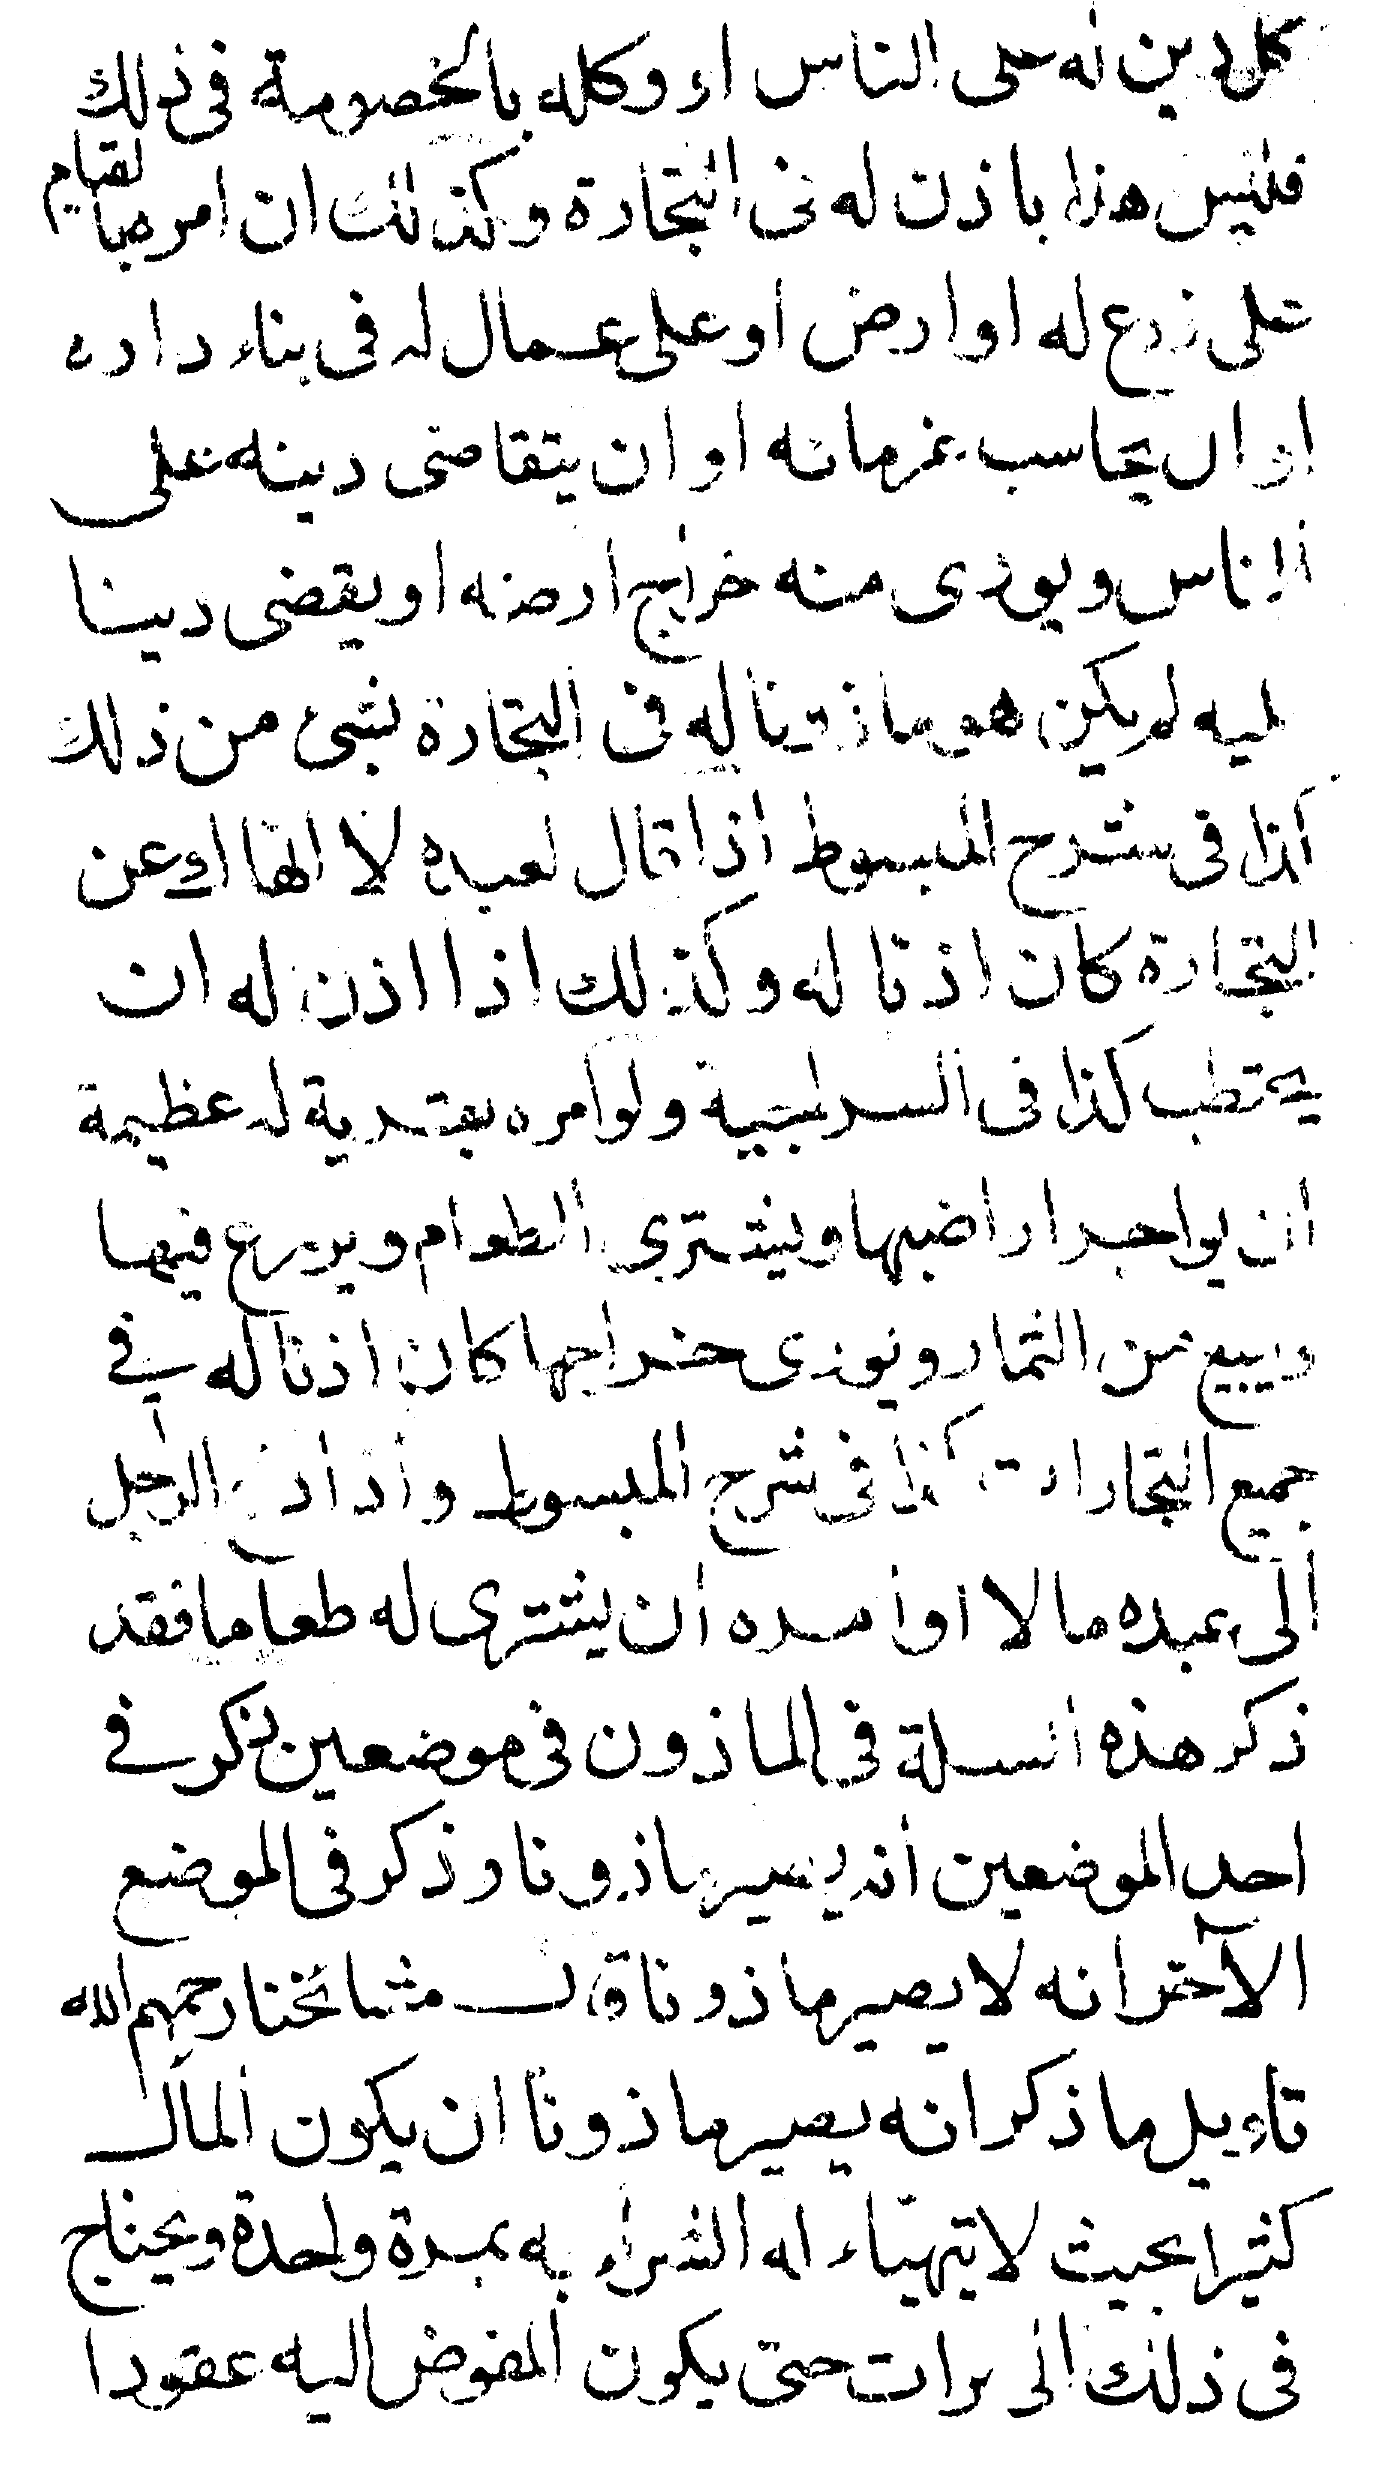 كل دين له على الناس او وكله بالخصومة فى ذلك
فليس هذا باذن له فى التجارة وكذلك ان امره بالقيام
على زرع له او ارض او على عمال له فى بناء داره
او ان يحاسب غرمائه او ان يتقاضى دينه على
الناس ويودى منه خراج ارضه او يقضى دينا
عليه لم يكن هو ماذونا له فى التجارة بشئ من ذلك
كذا فى شرح المبسوط اذا قال لعبده لا انهاك عن
التجارة كان اذنا له وكذلك اذا اذن له ان
يحتطب كذا فى السراجية ولو امره بقرية له عظيمة
ان يواجر اراضيها ويشترى الطعام ويزرع فيها
ويبيع من الثمار ويودى خراجها كان اذنا له في
جميع التجارات كذا فى شرح المبسوط واذا دفع الرجل
الى عبده مالا او امره ان يشترى له طعاما فقد
ذكر هذه المسلة فى الماذون فى موضعين ذكر في
احد الموضعين انه يصير ماذونا وذكر فى الموضع
الآخر انه لا يصير ماذونا قال مشائخنا رحمهم الله
تاءويل ما ذكر انه يصير ماذونا ان يكون المال
كثيرا بحيث لا يتهياء له الشراء به بمرة واحدة ويحتاج
فى ذلك الى مرات حتى يكون المفوض اليه عقودا